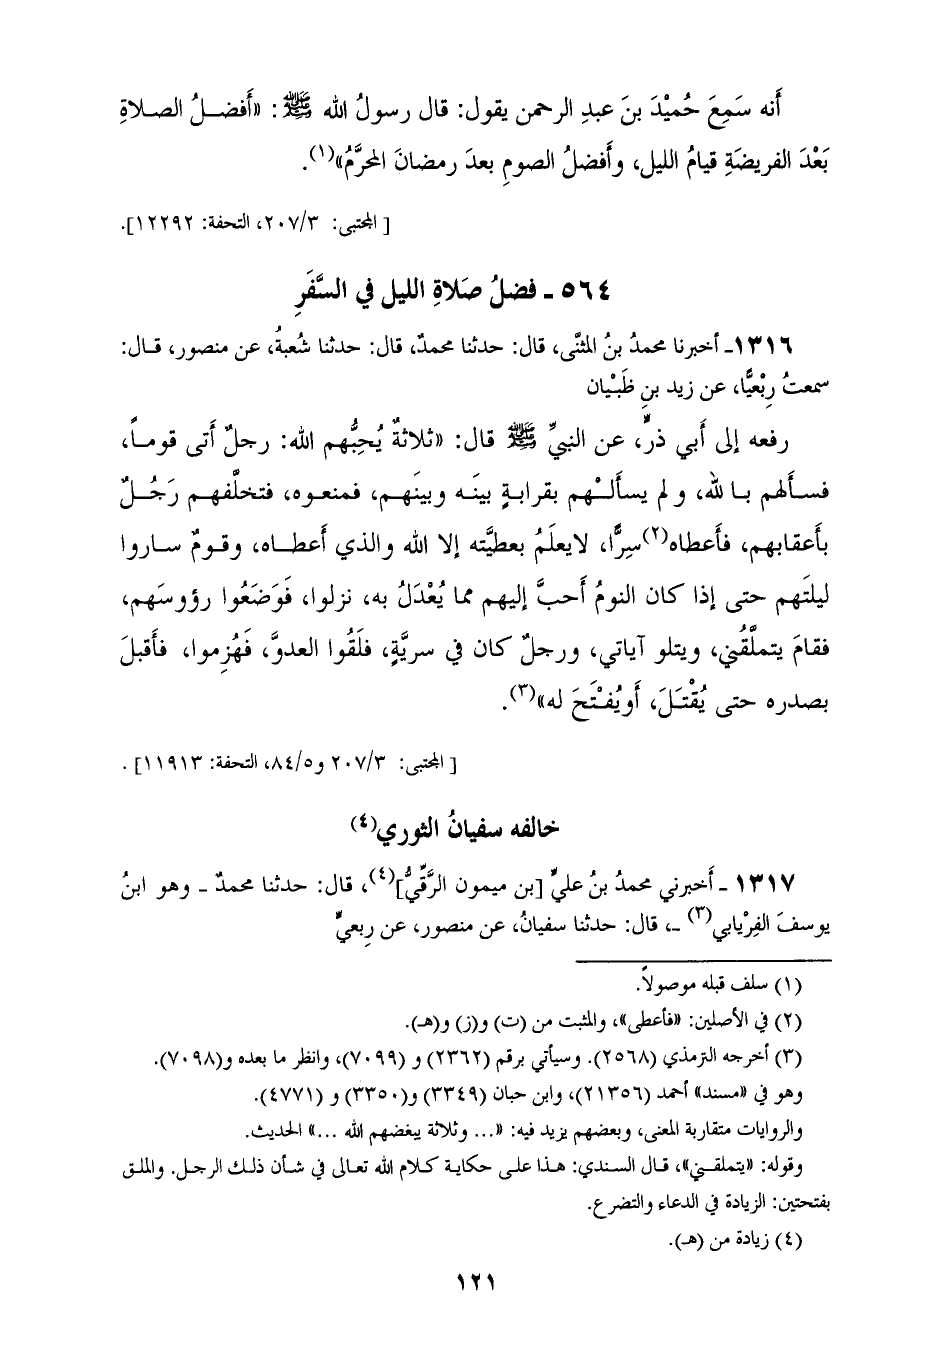 أَنه سَمِعَ حُمَيْدَ بنَ عبدِ الرحمن يقول: قال رسولُ الله ﷺ: «أَفضـلُ الصـلاةِ
بَعْدَ الفريضَةِ قيامُ الليل، وأَفضلُ الصومِ بعدَ رمضانَ المحرَّمُ»(١).
[ المجتبى: ٢٠٧/٣، التحفة: ١٢٢٩٢].
٥٦٤ ـ فضلُ صَلاةِ الليل في السَّفَرِ
١٣١٦ـ أخبرنا محمدُ بنُ المثنَّى، قال: حدثنا محمدٌ، قال: حدثنا شُعبةُ، عن منصور، قـال:
سمعتُ رِبْعيًّا، عن زيد بنِ ظَبْيان
رفعه إلى أَبي ذرٍّ، عن النبيِّ ﷺ قال: «ثلاثةٌ يُحِبُّهم الله: رجلٌ أَتى قومـاً،
فسـأَلهم بـالله، ولم يسأَلْـهم بقرابـةٍ بينَـه وبينَهـم، فمنعـوه، فتخلَّفهـم رَجُـلٌ
بأَعقابهم، فأَعطاه(٢)سِرًّا، لايعلَمُ بعطيَّته إلا الله والذي أَعطـاه، وقـومٌ سـاروا
ليلتَهم حتى إذا كان النومُ أحبَّ إليهم مما يُعْدَلُ به، نزلوا، فَوَضَعُوا رؤوسَهم،
فقامَ يتملَّقُني، ويتلو آياتي، ورجلٌ كان في سريَّةٍ، فلَقُوا العدوَّ، فَهُزِموا، فأَقبلَ
بصدره حتى يُقْتَـلَ، أَويُفْـتَحَ له»(٣).
[ المجتبى: ٢٠٧/٣ و٨٤/٥، التحفة: ١١٩١٣] .
خالفه سفيانُ الثوري(٤)
١٣١٧ ـ أَخبرني محمدُ بنُ عليٍّ [بن ميمون الرَّقِّيُّ](٤)، قال: حدثنا محمدٌ ـ وهو ابنُ
يوسفَ الفِرْيابي(٣) ـ، قال: حدثنا سفيانُ، عن منصور، عن رِبعيٍّ
(١) سلف قبله موصولاً.
(٢) في الأصلين: «فأعطى»، والمثبت من (ت) و(ز) و(هـ).
(٣) أخرجه الترمذي (٢٥٦٨). وسيأتي برقم (٢٣٦٢) و (٧٠٩٩)، وانظر ما بعده و(٧٠٩٨).
وهو في «مسند» أحمد (٢١٣٥٦)، وابن حبان (٣٣٤٩) و(٣٣٥٠) و (٤٧٧١).
والروايات متقاربة المعنى، وبعضهم يزيد فيه: «... وثلاثة يبغضهم الله ...» الحديث.
وقوله: «يتملقـني»، قـال السـندي: هـذا علـى حكايـة كـلام الله تعالى في شأن ذلـك الرجـل. والملـق
بفتحتين: الزيادة في الدعاء والتضرع.
(٤) زيادة من (هـ).
١٢١